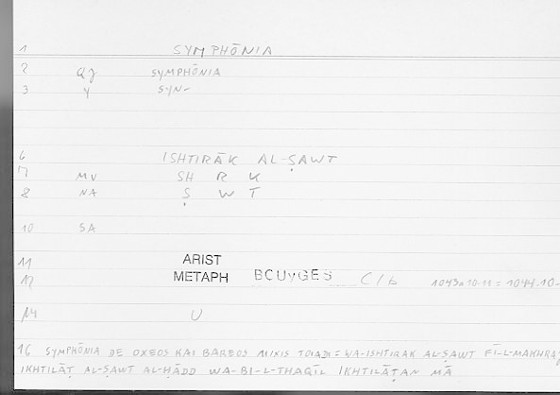 1 SYMPHŌNIA
2 QJ SYMPHŌNIA
3 Y SYN-
6 ISHTIRĀK AL-ṢAWT
7 MV SH R K
8 NA Ṣ W T
10 SA
11 ARIST
12 METAPH BOUYGES C/b 1043a10-11 = 1044,10-
14 U
16 SYMPHŌNIA DE OXEOS KAI BAREOS MIXIS TOIADI = WA-ISHTIRAK AL-ṢAWT FĪ-L-MAKHRAJ
IKHTILĀṬ AL-ṢAWT AL-ḤĀDD WA-BI-L-THAQĪL IKHTILĀṬAN MĀ